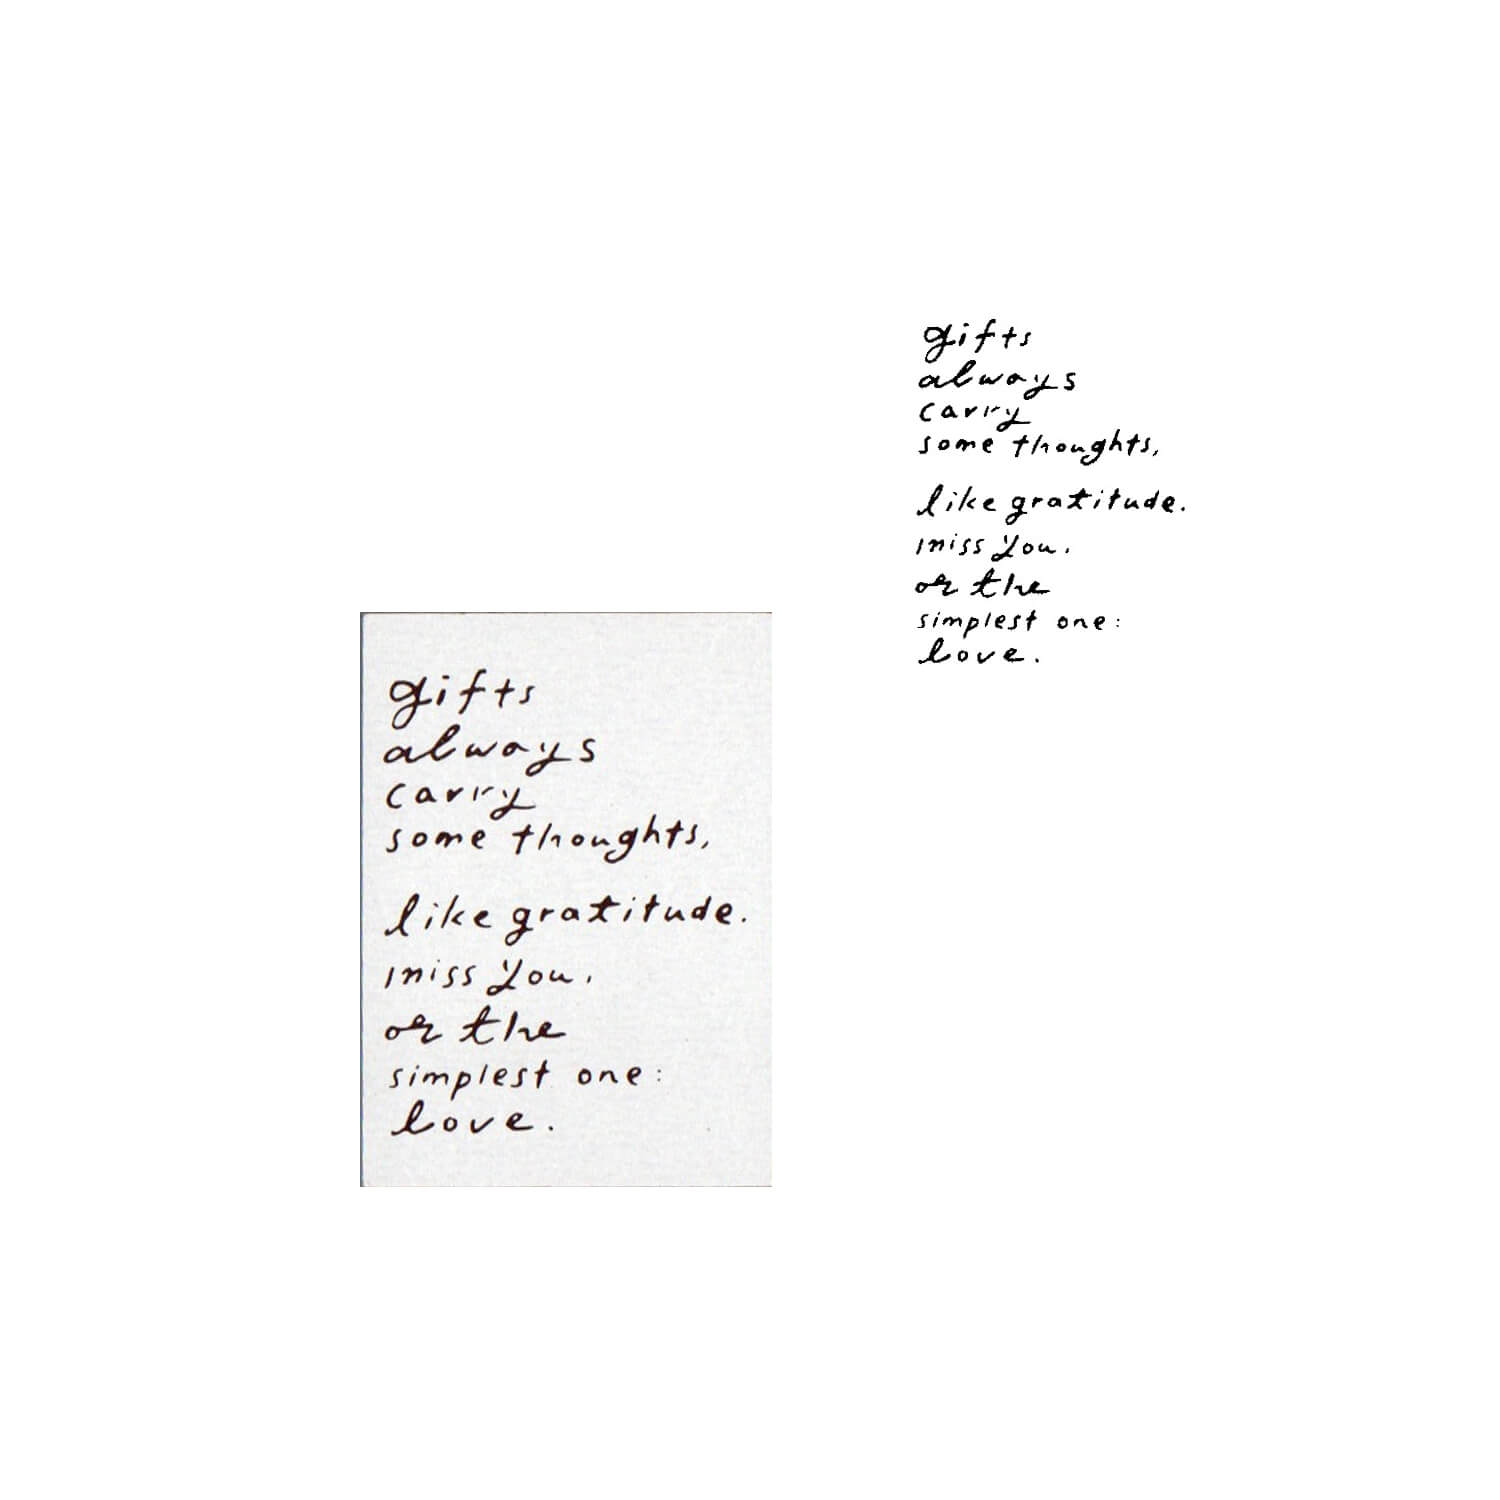 gifts
always
carry
some thoughts,
like gratitude.
miss you,
or the
simplest one:
love.
gifts
always
carry
some thoughts,
like gratitude.
miss you,
or the
simplest one:
love.